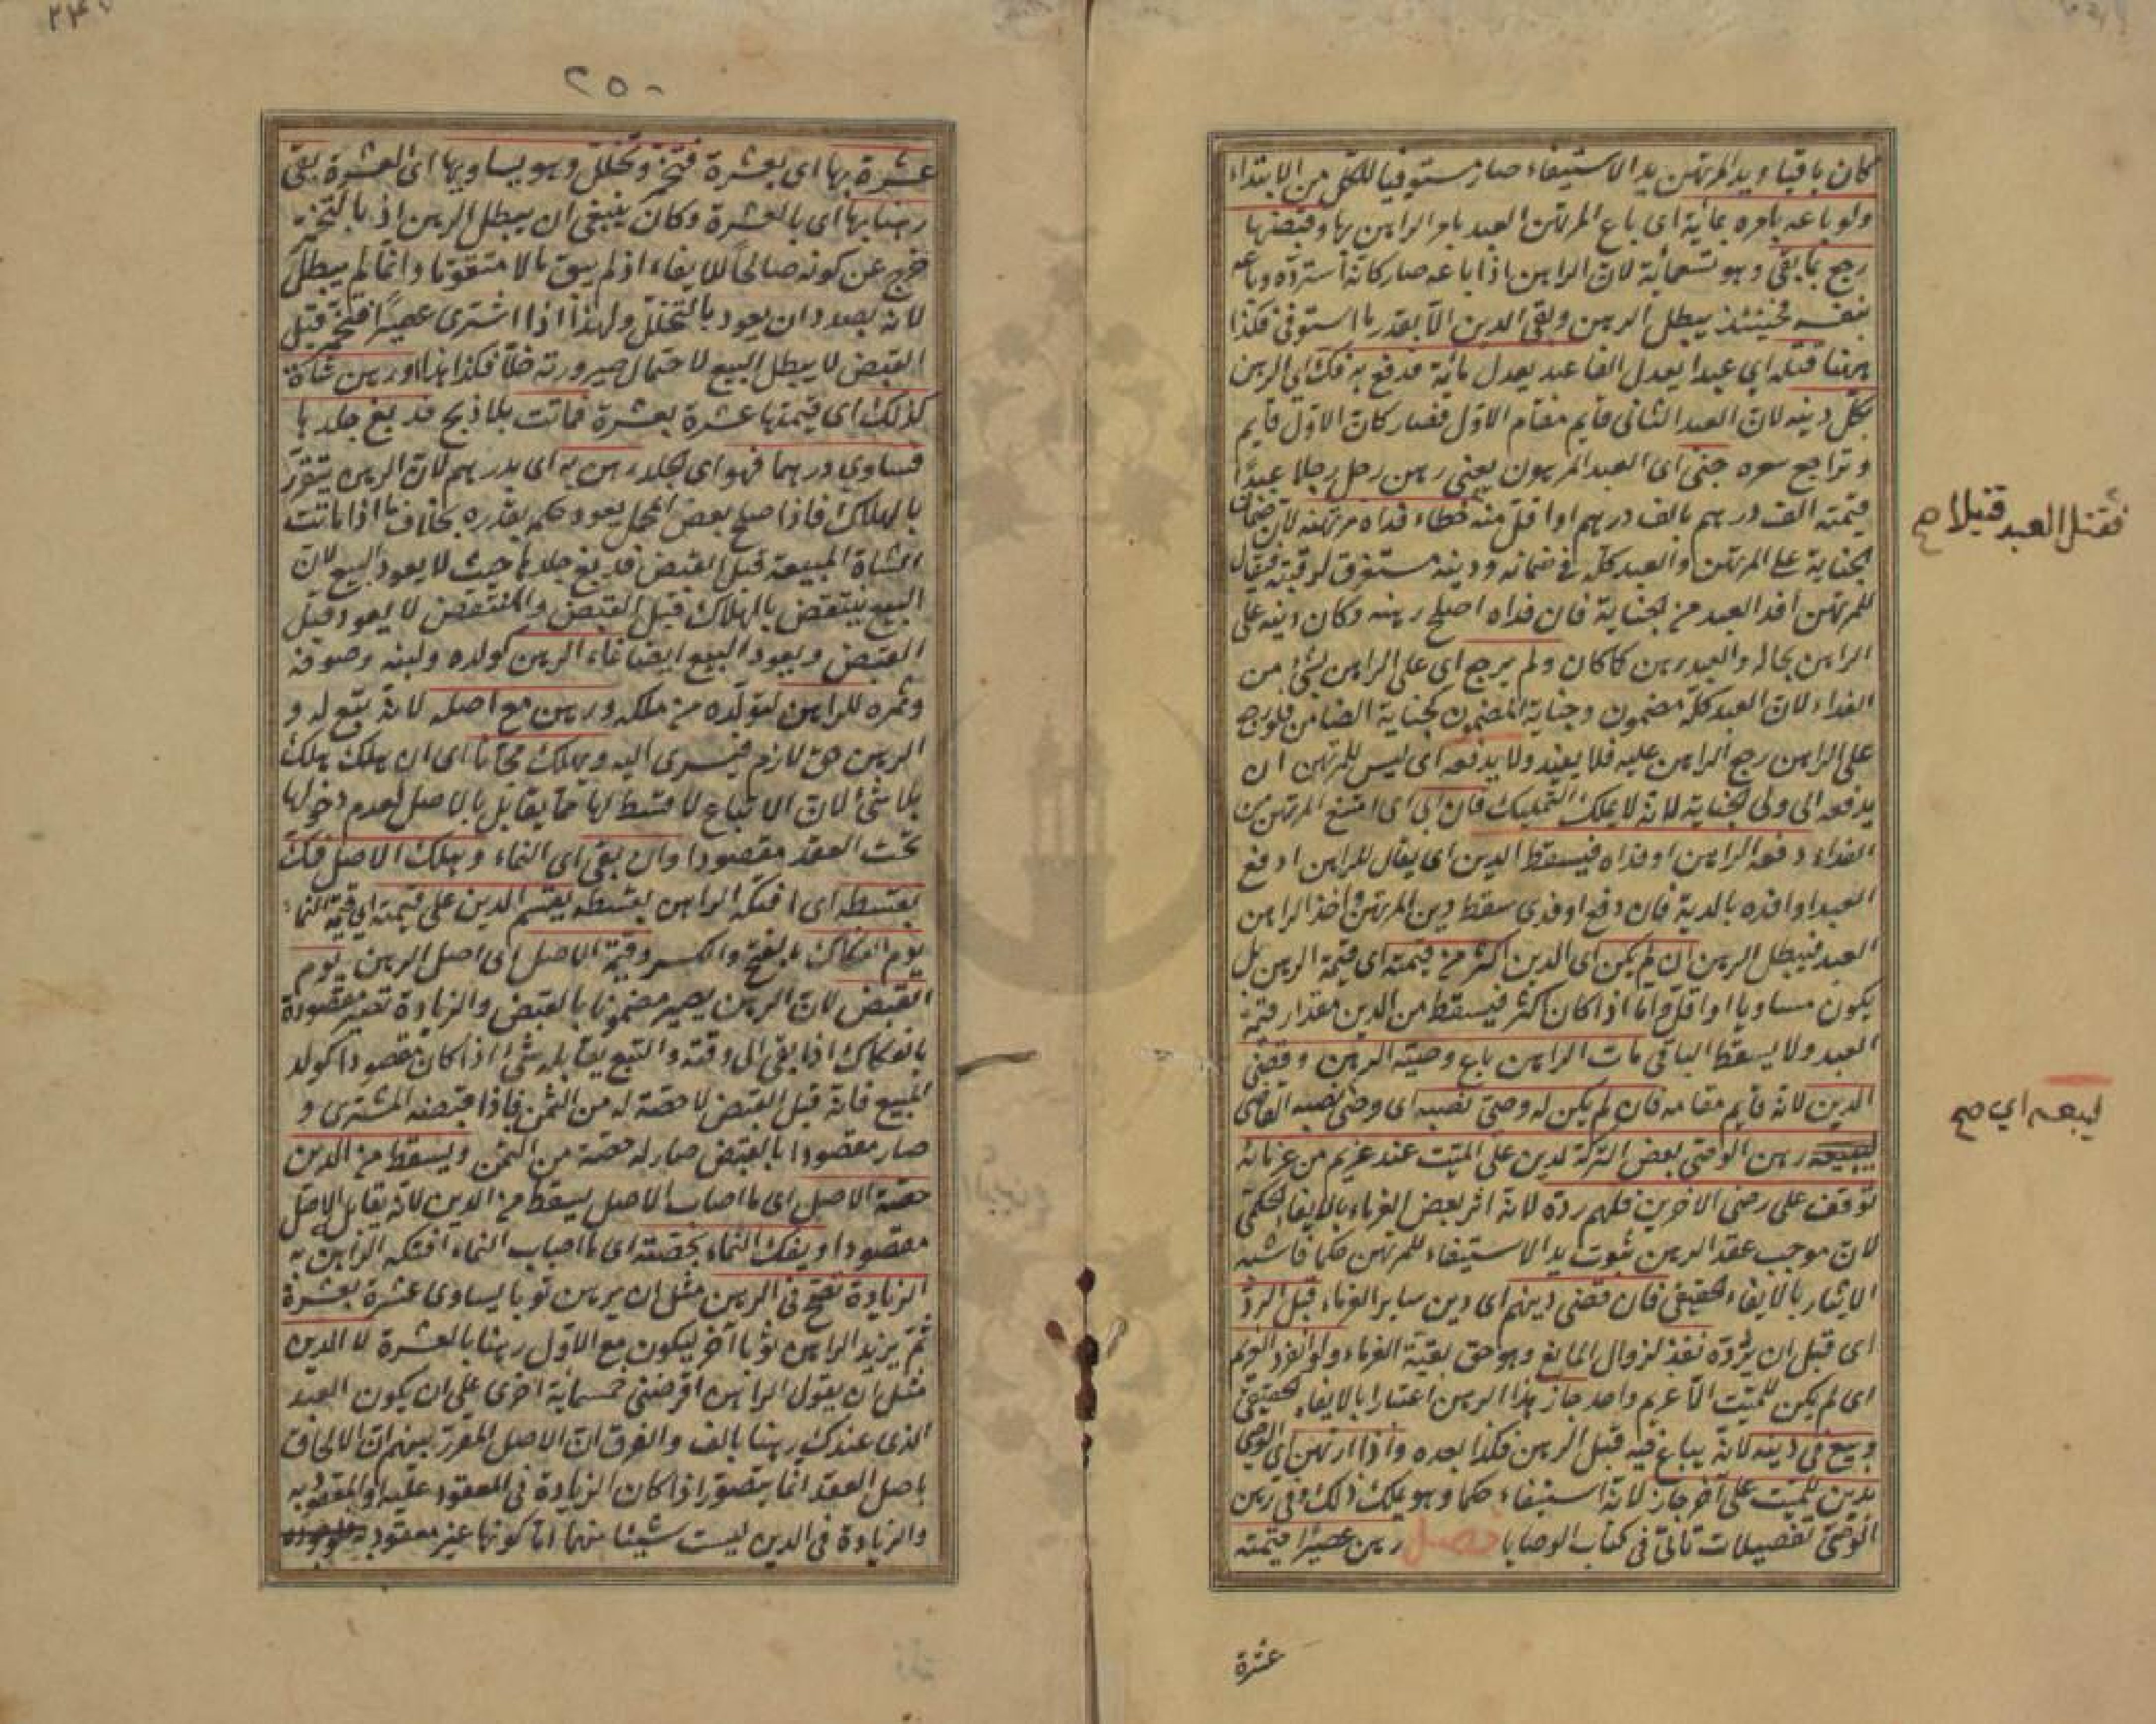 كان باقيا ويد المرتهن يد الاستيفاء صار مستوفيا للكل من الابتداء
ولو باعه بامره بمائة اى باع المرتهن العبد بامر الراهن بها وقبضها
رجع بما بقى وهو تسعمائة لان الراهن اذا باعه صار كانه استرده وباعه
بنفسه فحينئذ يبطل الرهن وبقى الدين الا بقدر ما استوفى فكذا
هنا قتله اى عبدا يعدل الفا عبد يعدل مائة فدفع به فك اى الرهن
بكل دينه لان العبد الثانى قايم مقام الاول فصار كان الاول قايم
وتراجع سعره جنى اى العبد المرهون يعنى رهن رجل رجلا عبدا
قيمته الف درهم بالف درهم او اقل منه خطاء فداه مرتهنه لان ضمان
فقتل العبد قتيلا صح
الجناية على المرتهن والعبد كله فى ضمانه ودينه مستغرق لرقبته فيقال
للمرتهن افد العبد من الجناية فان فداه اصلح رهنه وكان دينه على
الراهن بحاله والعبد رهن كما كان ولم يرجع اى على الراهن بشئ من
الفداء لان العبد كله مضمون وجناية المضمون كجناية الضامن فلو رجع
على الراهن رجع الراهن عليه فلا يفيد ولا يدفعه اى ليس للمرتهن ان
يدفعه الى ولى الجناية لانه لا يملك التمليك فان ابى اى امتنع المرتهن من
الفداء دفعه الراهن او فداه فيسقط الدين اى يقال للراهن ادفع
العبد او افده بالدية فان دفع او فدى سقط دين المرتهن واخذ الراهن
العبد فيبطل الرهن ان لم يكن اى الدين اكثر من قيمته اى قيمة الرهن بل
يكون مساويا او اقل واما اذا كان اكثر فيسقط من الدين مقدار قيمة
العبد ولا يسقط الباقى مات الراهن باع وصيه الرهن وقضى
الدين لانه قايم مقامه فان لم يكن له وصى نصبه اى وصى نصبه القاضى
ليبيعه رهن الوصى بعض التركة لدين على الميت عند غريم من غرمائه
ليبعه اي صح
توقف على رضى الاخرين فلهم رده لانه اثر بعض الغرماء بالايفاء الحكمى
لان موجب عقد الرهن ثبوت يد الاستيفاء للمرتهن حكما فاشبه
الايثار بالايفاء الحقيقى فان قضى دينهم اى دين ساير الغرماء قبل الرد
اى قبل ان يرده نفذ لزوال المانع وهو حق بقية الغرماء ولو انفرد الغريم
اى لم يكن للميت الا غريم واحد جاز هذا الرهن اعتبارا بالايفاء الحقيقى
وبيع فى دينه لانه يباع فيه قبل الرهن فكذا بعده واذا ارتهن اى الوصى
بدين للميت على آخر جاز لانه استيفاء حكما وهو يملك ذلك وفى رهن
الوصى تفصيلات تاتى فى كتاب الوصايا فصل رهن عصيرا قيمته
عشرة
٢٥٠
عشرة بها اى بعشرة فتخمر وتخلل وهو يساويها اى العشرة بقى
رهنا بها اى بالعشرة وكان ينبغى ان يبطل الرهن اذ بالتخمر
خرج عن كونه صالحا للايفاء اذ لم يبق مالا متقوما وانما لم يبطل
لانه بصدد ان يعود بالتخلل ولهذا اذا اشترى عصيرا فتخمر قبل
القبض لا يبطل البيع لاحتمال صيرورته خلا فكذا هذا ورهن شاة
كذلك اى قيمتها عشرة بعشرة فماتت بلا ذبح فدبغ جلدها
فساوى درهما فهو اى الجلد رهن به اى بدرهم لان الرهن يتقرر
بالهلاك فاذا صلح بعض المحل يعود حكمه بقدره بخلاف ما اذا ماتت
الشاة المبيعة قبل القبض فدبغ جلدها حيث لا يعود البيع لان
البيع ينتقض بالهلاك قبل القبض والمنتقض لا يعود وقيل
القبض ويعود البيع ايضا نماء الرهن كولده ولبنه وصوفه
وثمره للراهن لتولده من ملكه ورهن مع اصله لانه تبع له و
الرهن حق لازم فيسرى اليه ويهلك مجانا اى ان يهلك يهلك
بلا شئ لان الاتباع لا قسط لها مما يقابل بالاصل لعدم دخولها
تحت العقد مقصودا وان بقى اى النماء وهلك الاصل فك
بقسطه اى افتكه الراهن بقسطه يقسم الدين على قيمته اى قيمة النماء
يوم الفكاك بالفتح والكسر وقيمة الاصل اى اصل الرهن يوم
القبض لان الرهن يصير مضمونا بالقبض والزيادة تصير مقصودة
بالفكاك اذا بقى الى وقته والتبع يقابله شئ اذا كان مقصودا كولد
المبيع فانه قبل القبض لا حصة له من الثمن فاذا قبضه المشترى و
صار مقصودا بالقبض صار له حصة من الثمن ويسقط من الدين
حصة الاصل اى ما اصاب الاصل يسقط من الدين لانه يقابل الاصل
مقصودا ويفك النماء بحصته اى ما اصاب النماء افتكه الراهن به
الزيادة تصح فى الرهن مثل ان يرهن ثوبا يساوى عشرة بعشرة
ثم يزيد الراهن ثوبا آخر ليكون مع الاول رهنا بالعشرة لا الدين
مثل ان يقول الراهن اقرضنى خمسمائة اخرى على ان يكون العبد
الذى عندك رهنا بالف والفرق ان الاصل المقرر بينهم ان الالحاق
باصل العقد انما يتصور اذا كان الزيادة فى المعقود عليه او المعقود به
والزيادة فى الدين ليست شيئا منهما اما كونها غير معقود به